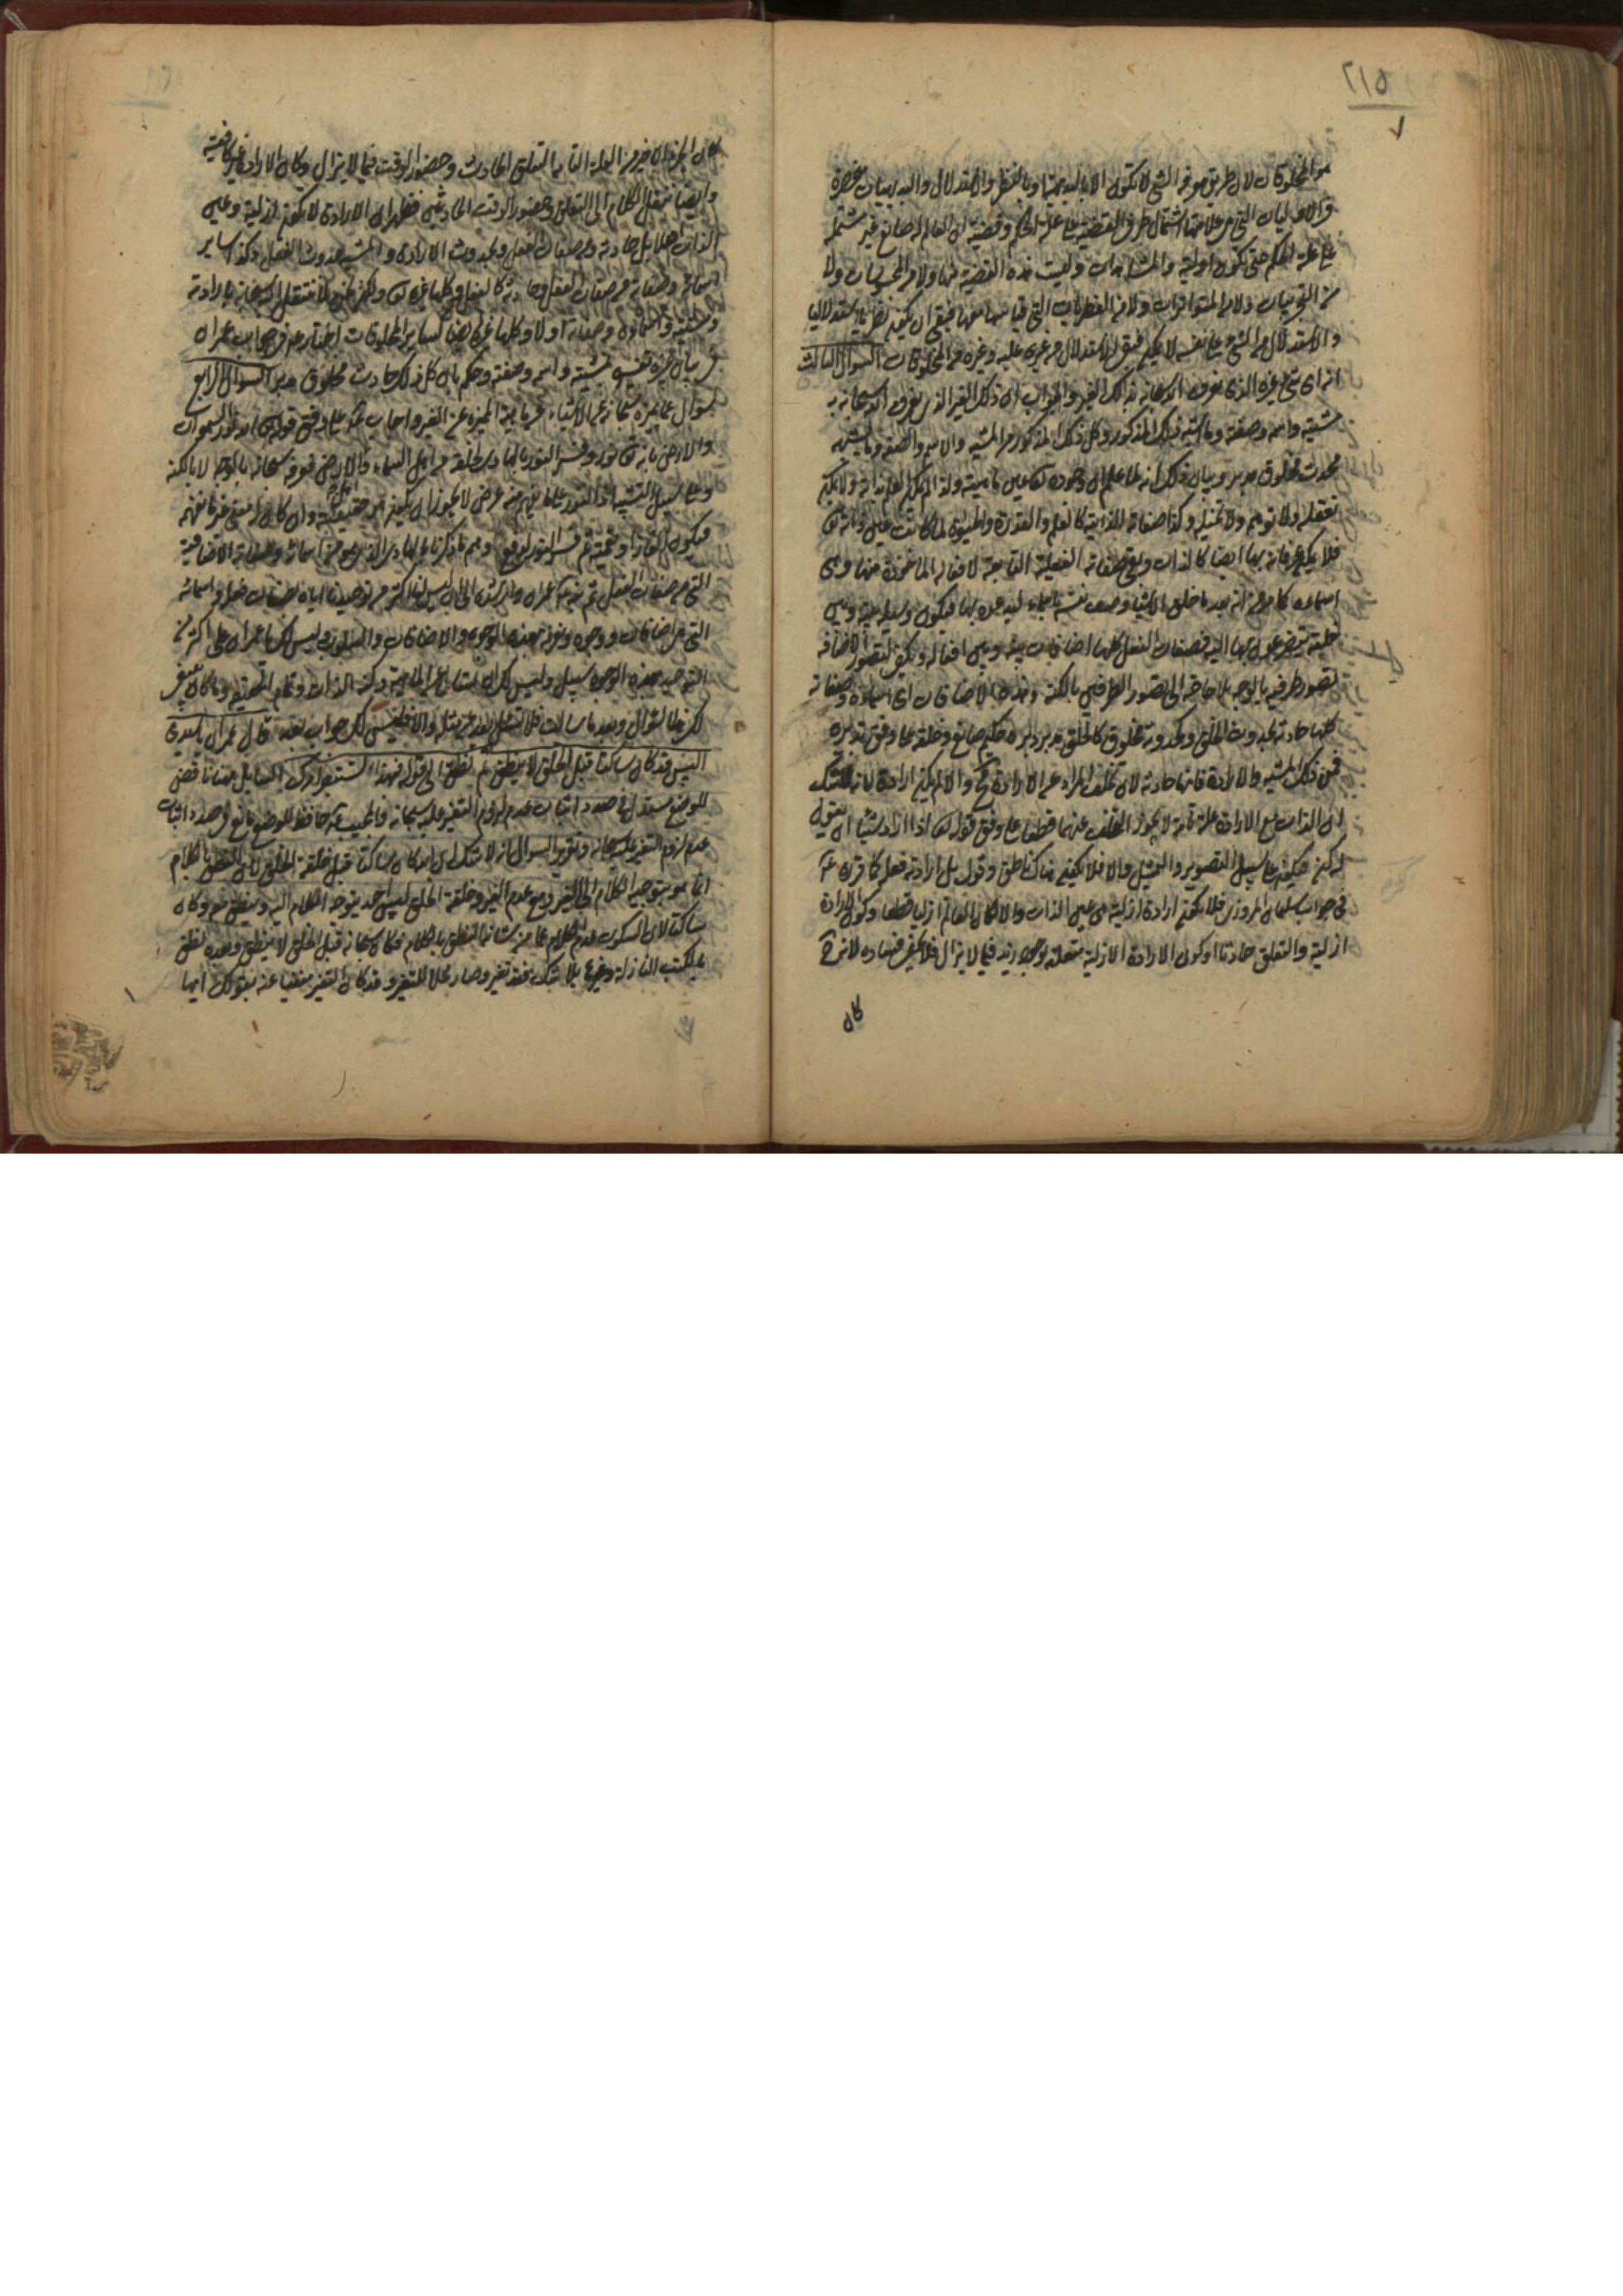 ٢١٥
من المخلوقات لان طريق معرفة الشي لا تكون الا بالبديهية او بالنظر والاستدلال والبديهيات منحصرة
والاوليات التي من علامتها اشتمال طرفي القضية على علة الحكم وقضية ان العالم له صانع غير مشتملة
على علة الحكم حتى تكون اولية والمشاهدات وليست هذه القضية منها ولا من الحدسيات ولا
من التجربيات ولا من المتواترات ولا من الفطريات التي قياساتها معها فبقى ان يكون نظريا استدلاليا
والاستدلال من الشي على نفسه لا يمكن فبقى الاستدلال من غيره عليه وغيره من المخلوقات السؤال الثالث
انه اي شي غيره الذي نعرف الله سبحانه بذلك الغير والجواب ان ذلك الغير الذي يعرف الله سبحانه به
مشيته واسمه وصفته وما اشبه ذلك المذكور وكل ذلك المذكور من المشية والاسم والصفة وما يشبه
محدث مخلوق مدبر وبيان ذلك انه لما علم ان وجوده تعالى عين ماهيته ولذا لا يمكن العلم بذاته ولا يمكن
تعقله ولا توهمه ولا تخيله وكذا صفاته الذاتية كالعلم والقدرة والحيوة لما كانت عين ذاته تعالى
فلا يمكن عرفانه بها ايضا كالذات وبقي صفاته الفعلية التابعة لافعاله الماخوذة منها وهي
اسماءه كما مر من انه بعد ما خلق الاشيا وصف نفسه باسماء ليدعوه بها فتكون وسايل بينه وبين
خلقه يتضرعون بها اليه فصفات الفعل كلها اضافات بينه وبين افعاله ويكفي لتصور الاضافة
تصور طرفيه بالوجه بلا حاجة الى تصور الطرفين بالكنه وهذه الاضافات اي اسماءه وصفاته
كلها حادثة بحدوث الخلق وبحدوثه مخلوق كالخلق مدبر دبره حكيم صانع وخلقه على وفق تدبيره
فمن ذلك المشية والارادة فانها حادثة لان تخلف المراد عن الارادة والا لم يكن ارادة لانه لا شك
ان الذات مع الارادة علة تامة لا يجوز التخلف عنهما قطعا على وفق قوله تعالى اذا اراد شيئا ان يقول
له كن فيكون على سبيل التصوير والتمثيل والا فلا يكون هناك ناطق وقول بل ارادته فعل كما قرره
في جواب سليمان المروزي فلا يكون ارادة ازلية هي عين الذات والا لكان العالم ازليا قطعا وكون الارادة
ازلية والتعلق حادثا او كون الارادة الازلية متعلقة بوجود زيد فيما لا يزال فلا يخفى فساده لانه
كان
كان الجزء الاخير من العلة التامة التعلق الحادث وحضور الوقت فيما لا يزال وكان الارادة غير كافية
وايضا ننقل الكلام الى التعلق وحضور الوقت الحادثين فظهر ان الارادة لا يكون ازلية وعين
الذات اصلا بل حادثة من صفات الفعل وبحدوث الارادة والمشية حدوث الفعل وكذا ساير
اسمائه وصفاته من صفات الفعل حادثة كالفعل وكلها غيره تعالى
ومشيته واسمائه وصفاته اولا وكلها غيره تعالى ايضا كساير المخلوقات
بيان غيره تفسير بمشيته واسمه وصفته وحكم بان كل ذلك حادث مخلوق مدبر السؤال الرابع
سؤال عما يميزه سبحانه عن الاشياء واجاب على وفق قوله تعالى الله نور السموات
والارض بانه تعالى نور وفسر النور بالهادي لخلقه من اهل السماء والارض فهو سبحانه بالوجه لا بالكنه
وعلى سبيل التشبيه اذ النور على ما يفهم منه عرض لا يجوز ان يكون هو حقيقته وان كان له معنى غير ما نفهمه
التي هي صفات الفعل
التي هي اضافات ووجوه ونعرفه بهذه الوجوه والاضافات والسلوب وليس لك يا عمران على اكثر من
التوحيد بهذه الوجوه سبيل وليس لك ان تسئل عن الماهية وكنه الذات
لك هذا السؤال وبعد ما سالت فلا تسئل بعد عن مثله والا فليس لك جواب بعد قال عمران يا سيدي
اليس قد كان ساكتا قبل الخلق لا ينطق ثم نطق الى قوله فهذا تستبصر امرك السايل ههنا ناقض
للوضع مستدل في صدد اثبات عدم لزوم التغير عليه سبحانه والمجيب حافظ للوضع مانع في صدد اثبات
عدم لزوم التغير عليه سبحانه وتقرير السؤال انه لا شك في انه كان ساكتا قبل خلقة الخلق لان النطق بالكلام
انما هو بتوجيه الكلام الى الغير ومع عدم الغير وخلقة الخلق ليس احد يتوجه الكلام اليه وينطق معه وكان
ساكتا لان السكوت عدم الكلام عما من شانه النطق بالكلام فكان سبحانه قبل الخلق لا ينطق وبعده نطق
بالكتب النازلة وغيرها بلا شك فقد تغير وصار محلا للتغير وقد كان التغير منفيا عنه بقولك ايها